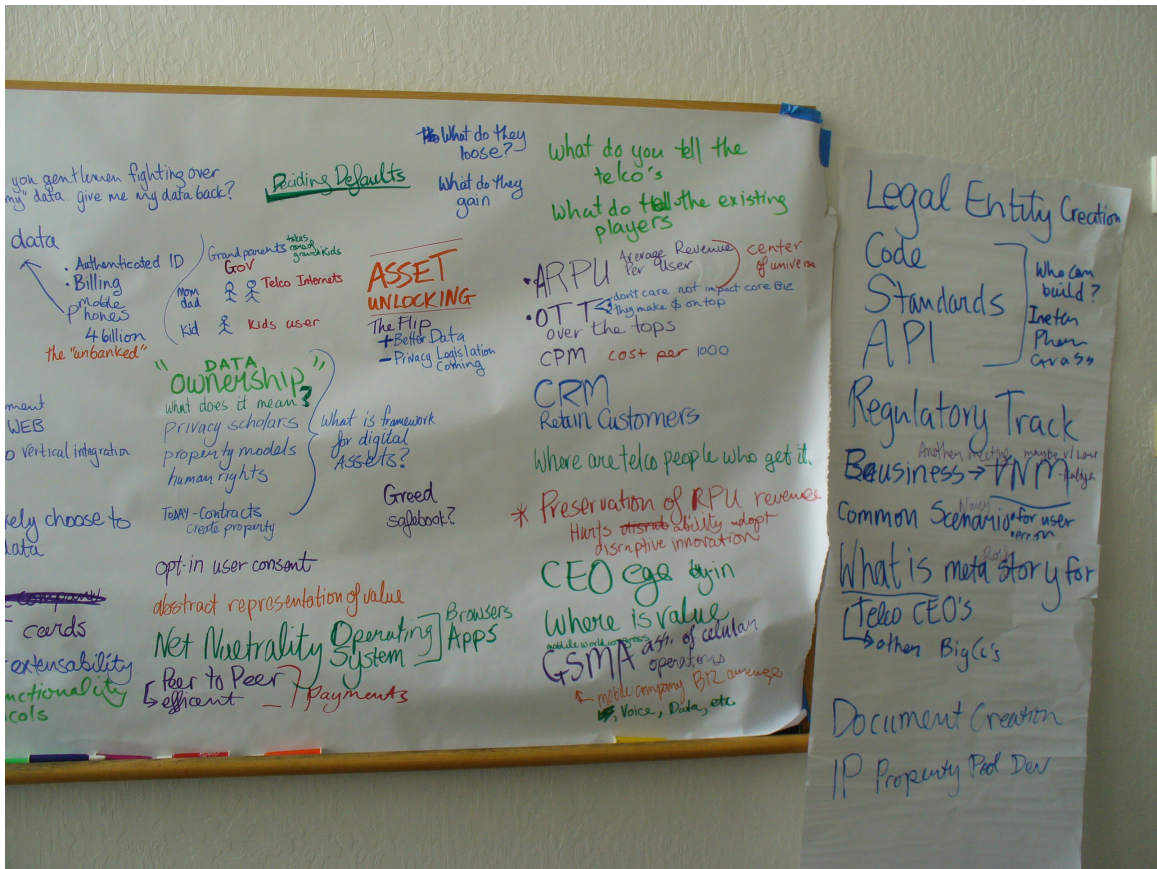 you gentlemen fighting over
my" data. give me my data back?
data
• Authenticated ID
• Billing
mobile
phones
4 billion
the "unbanked"
ment
WEB
vertical integration
ely choose to
data
cards
extensability
nctionality
cols
Deciding Defaults
Grandparents takes care of grandkids
Gov
Mom
dad
Telco Internets
Kid
Kids user
"DATA
ownership"
what does it mean?
privacy scholars
property models
human rights
TODAY - Contracts
create property
What is framework
for digital
Assets?
opt-in user consent
abstract representation of value
Net Nuetrality Operating
System
Browsers
Apps
Peer to Peer
efficent
payments
What do they
loose?
What do they
gain
ASSET
UNLOCKING
The Flip
+ Better Data
- Privacy Legislation
Coming
Greed
safebook?
What do you tell the
telco's
What do tell the existing
players
• ARPU Average Revenue
Per User
center
of universe
• OTT don't care not impact core Biz
they make $ on top
over the tops
CPM cost per 1000
CRM
Retain Customers
Where are telco people who get it
* Preservation of RPU revenue
Hurts ability adopt
disruptive innovation
CEO ego buyin
Where is value
mobile world congress
GSMA ash. of celular
operations
mobile company
Voice, Data, etc
Legal Entity Creation
Code
Standards
API
Who can
build?
Regulatory Track
Business → VNM
Another meeting maybe
Common Scenario • for user
What is meta story for
Telco CEO's
other BigCo's
Document Creation
IP Property Pool Dev